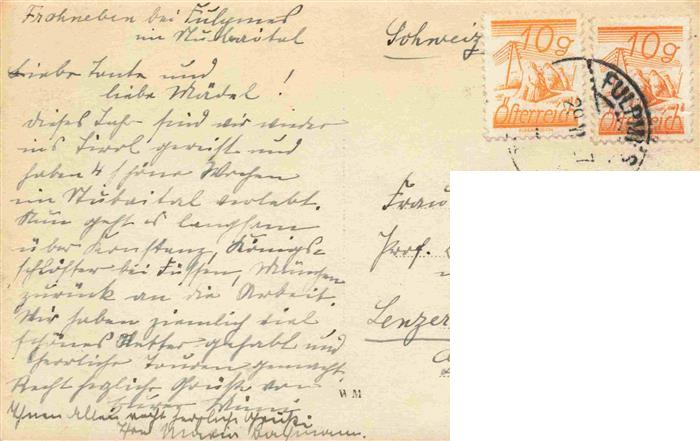 Frohneben bei Fulpmes
im Stubaital
Schweiz
10g
10g
Österreich
Österreich
FULPMES
Liebe Tante und
liebe Mädel!
dieses Jahr sind wir wieder
ins Tirol gereist und
haben 4 schöne Wochen
im Stubaital verlebt.
Nun geht es langsam
über Konstanz, Königs-
schlösser bei Füssen, München
zurück an die Arbeit.
Wir haben ziemlich viel
schönes Wetter gehabt und
herrliche Touren gemacht.
Recht herzliche Grüße von
Eurer
Ihnen Allen recht herzliche Grüße
Ihre Maria
Frau
Prof.
Lenzer
WM